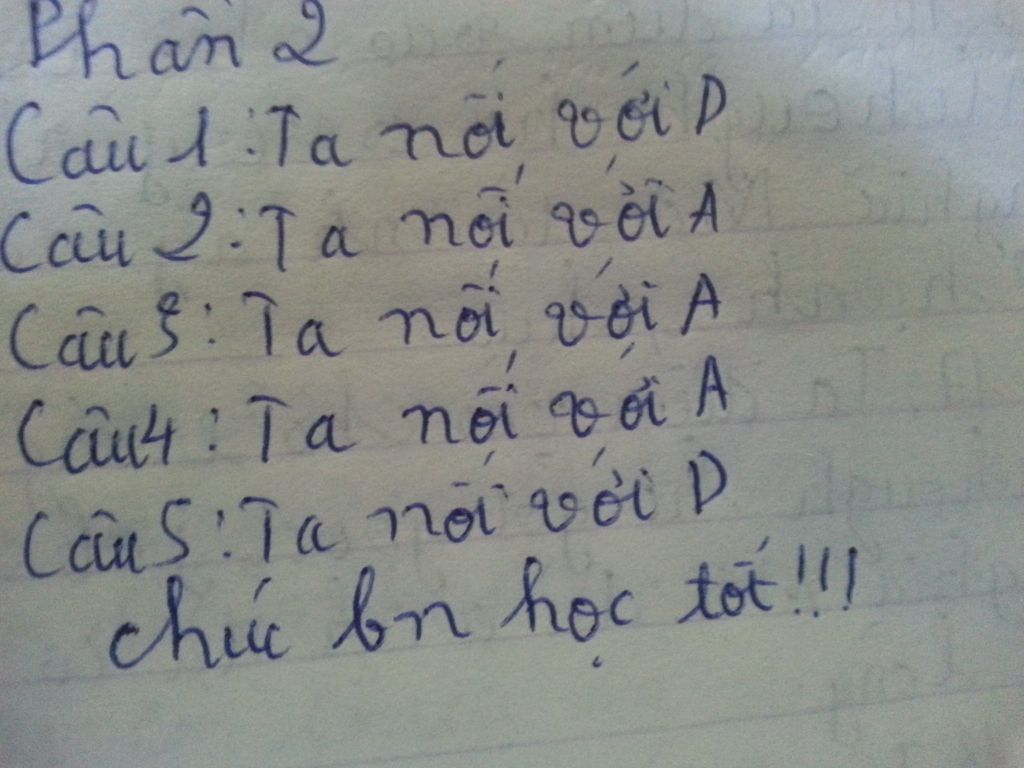 Phần 2
Câu 1: Ta nối với D
Câu 2: Ta nối với A
Câu 3: Ta nối với A
Câu 4: Ta nối với A
Câu 5: Ta nối với D
chúc bn học tốt!!!